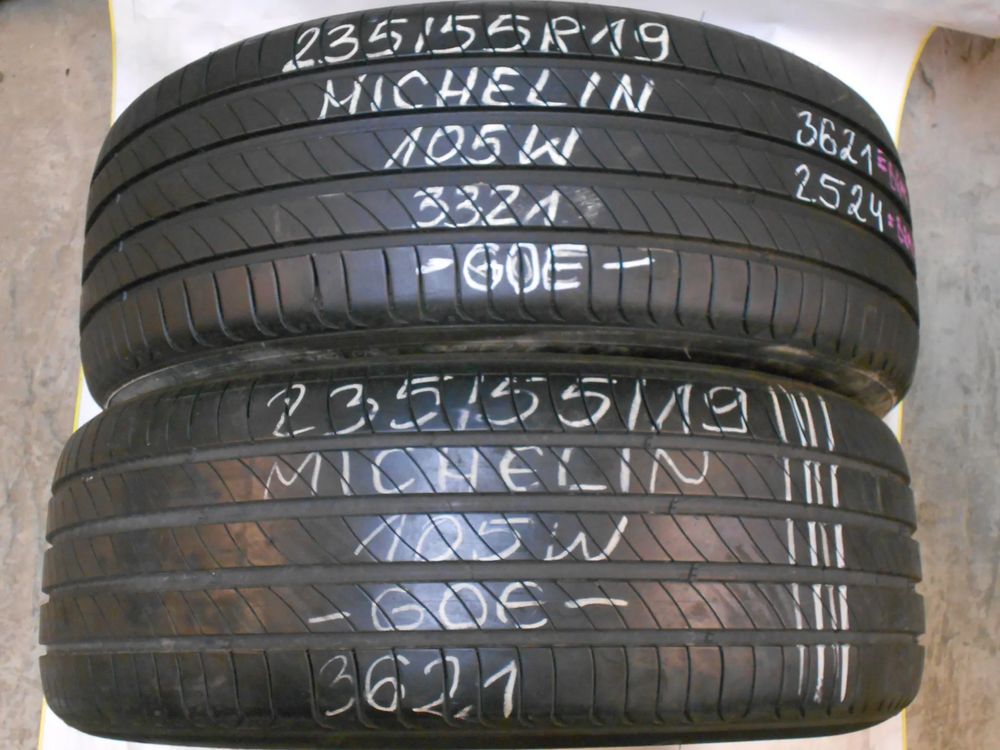 235/55R19
MICHELIN
105W
3321
-GOE-
3621=
2524=
235/55/19
MICHELIN
105W
-GOE-
3621